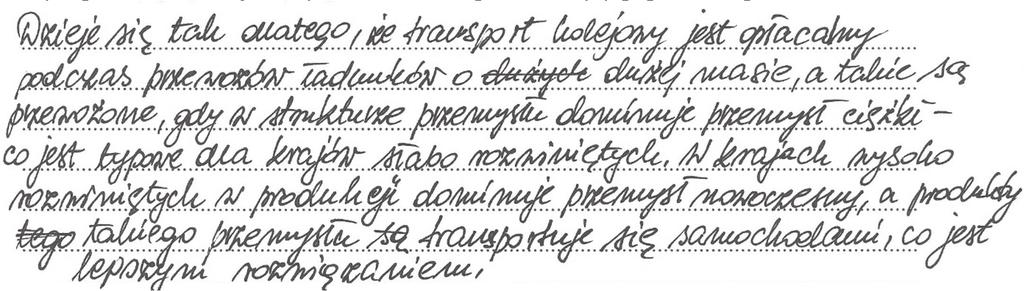 Dzieje się tak dlatego, że transport kolejowy jest opłacalny
podczas przewozów ładunków o dużych dużej masie, a takie są
przewożone, gdy w strukturze przemysłu dominuje przemysł ciężki –
co jest typowe dla krajów słabo rozwiniętych. W krajach wysoko
rozwiniętych w produkcji dominuje przemysł nowoczesny, a produkty
tego takiego przemysłu są transportuje się samochodami, co jest
lepszym rozwiązaniem.